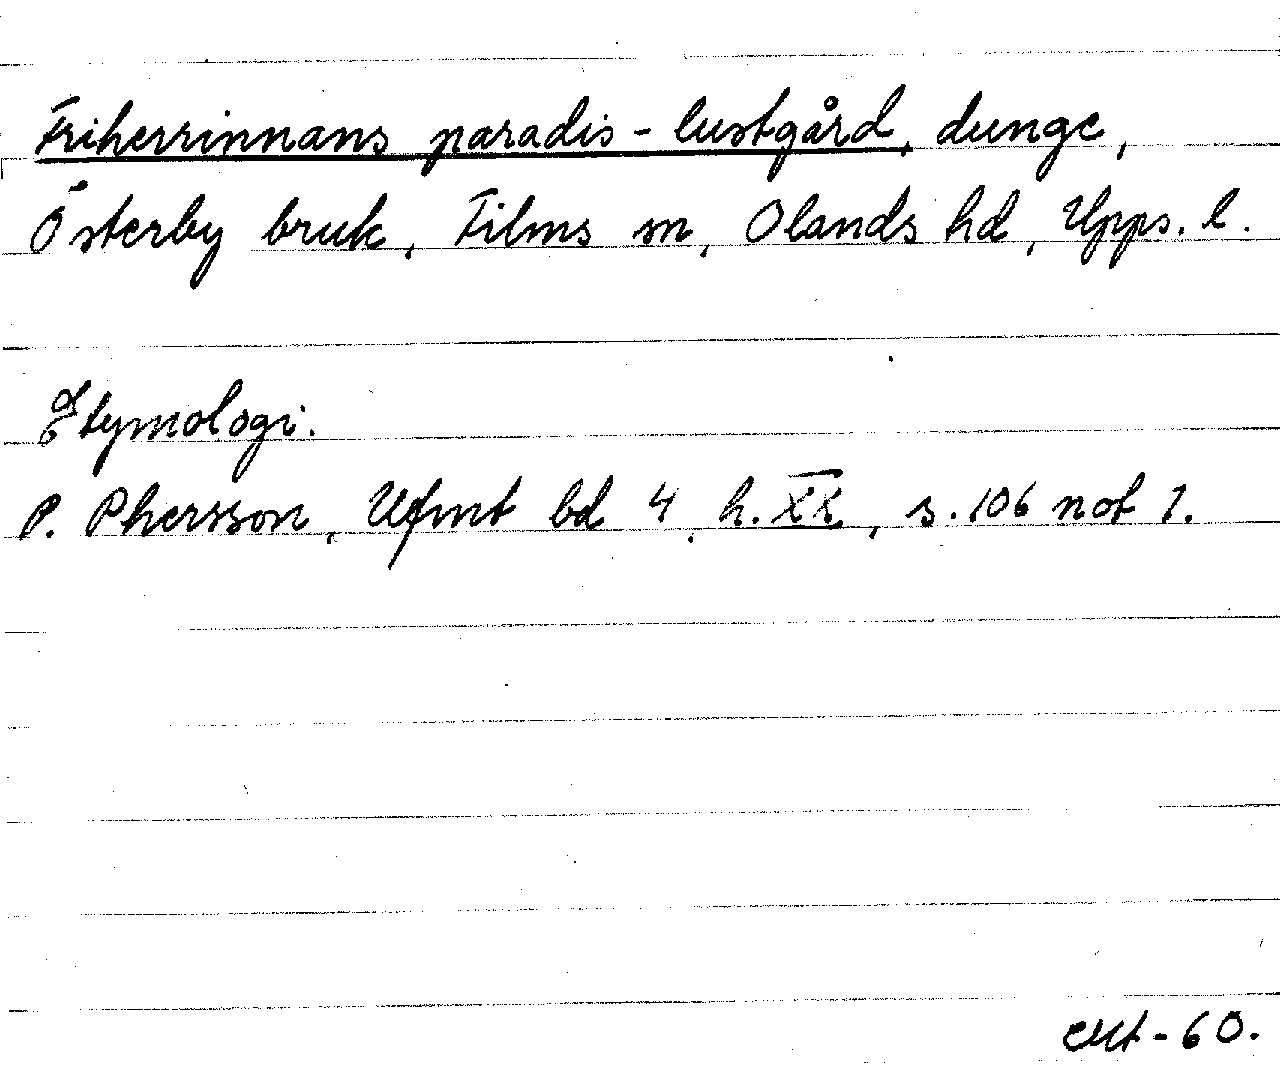 Friherrinnans paradis - lustgård, dunge,
Österby bruk, Films sn, Olands hd, Upps. l.
Etymologi.
P. Phersson, Ufmt bd 4, h. XX, s. 106 not 1.
-60.